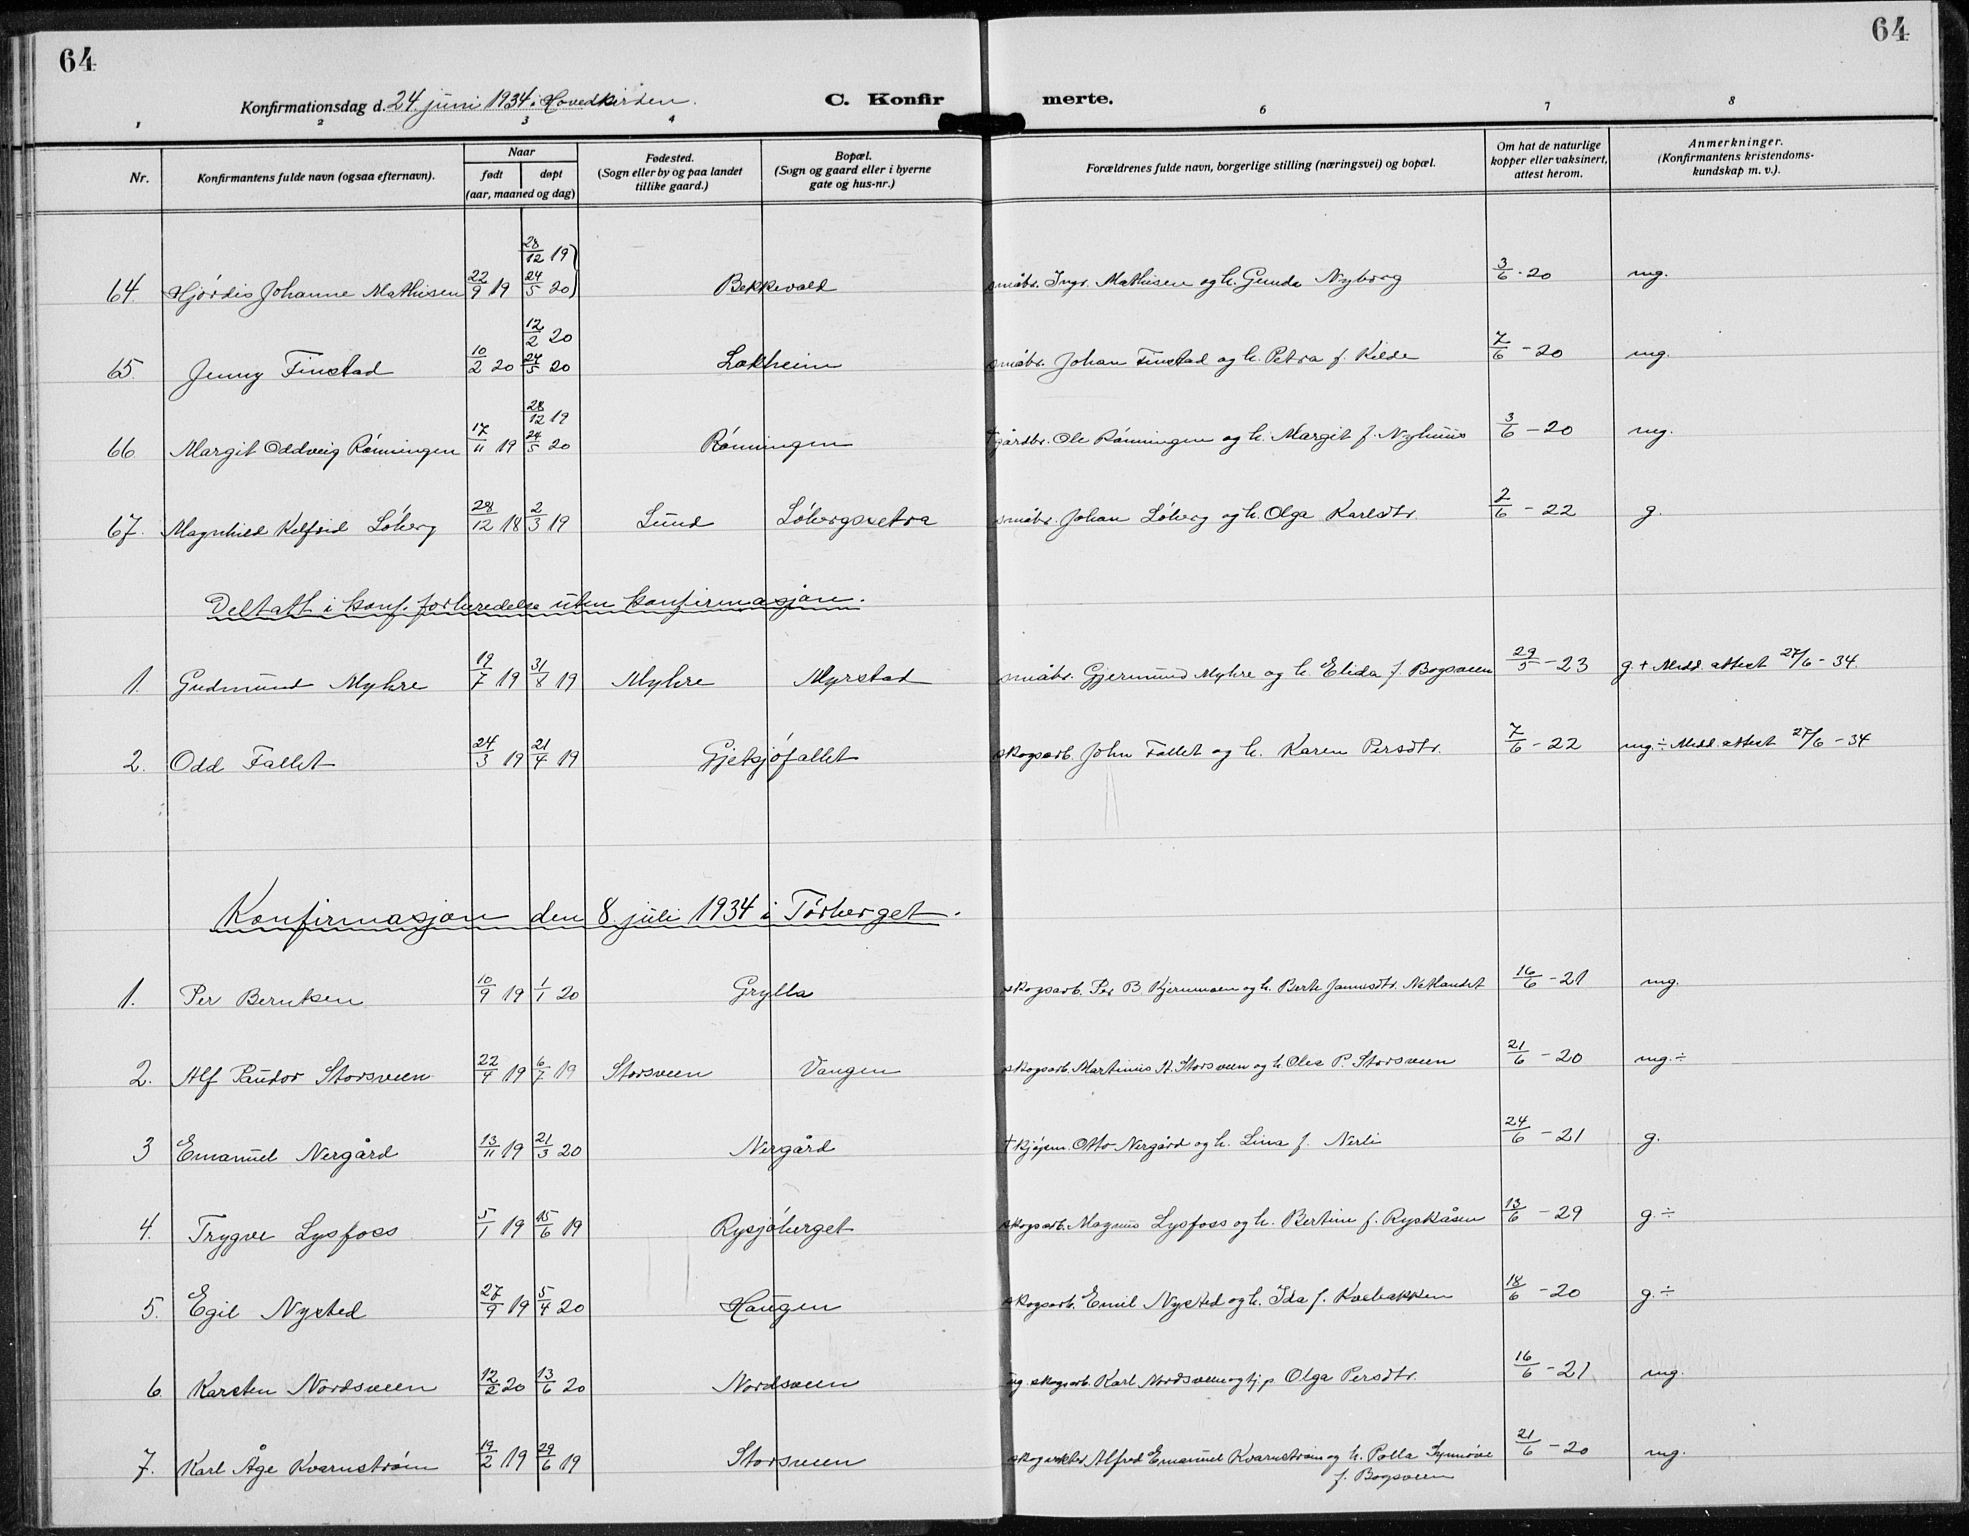 64
64
Konfirmationsdag d. 24. juni 1934 i Hovedkirken.
C. Konfir merte.
1 2 3 4 6 7 8
Nr. Konfirmantens fulde navn (ogsaa efternavn). Naar født døpt (aar, maaned og dag) Fødested. (Sogn eller by og paa landet tillike gaard.) Bopæl. (Sogn og gaard eller i byerne gate og hus-nr.) Forældrenes fulde navn, borgerlige stilling (næringsvei) og bopæl. Om hat de naturlige kopper eller vaksinert, attest herom. Anmerkninger. (Konfirmantens kristendoms-kundskap m. v.).
28/12 19)
64. Hjórdis Johanne Mathisen 22/9 19 24/5 20) Bekkevold småbr. Ingv. Mathisen og h. Gunda Nyborg 3/6 - 20 mg.
12/2 20
65. Jenny Finstad 10/2 20 24/5 20 Lokheim småbr. Johan Finstad og h. Petra f. Kilde 7/6 - 20 mg.
28/12 19
66 Margit Oddveig Rónningen 17/11 19 24/5 20 Rónningen † gårdbr. Ole Rónningen og h. Margit f. Nyhuus 3/6 - 20 mg.
67. Magnhild Kelfrid Lóberg 28/12 18 2/3 19 Lund Lóbergsetra småbr. Johan Lóberg og h. Olga Karlsdtr. 2/6 - 22 g.
Deltatt i konf. forberedelse uten konfirmasjon.
1. Gudmund Myhre 19/7 19 31/8 19 Myhre Myrstad småbr. Gjermund Myhre og h. Elida f. Bogsveen 29/5 - 23 g + Medd. attest 27/6 - 34.
2. Odd Fallet 24/3 19 21/4 19 Gjetsjófallet skogsarb. John Fallet og h. Karen Persdtr. 7/6 - 22 mg ÷ Medd. attest 27/6 - 34
Konfirmasjon den 8. juli 1934 i Tórberget.
1. Per Berntsen 10/9 19 1/1 20 Grylla skogsarb. Per B. Kjernmoen og h. Berte Jonusdtr. Netlandet 16/6 - 21 mg.
2. Alf Paudor Storsveen 22/4 19 6/7 19 Storsveen Vangen skogsarb. Martinus A. Storsveen og h Olea P. Storsveen 21/6 - 20 mg. ÷
3 Emanuel Nergård 13/11 19 21/3 20 Nergård † kjópm. Otto Nergård og h. Lina f. Nerli 24/6 - 21 g.
4. Trygve Lysfoss 5/1 19 15/6 19 Rysjóberget skogsarb. Magnus Lysfoss og h. Bertine f. Ryskåsen 13/6 - 29 g. ÷
5. Egil Nysted 27/9 19 5/4 20 Haugen skogsarb. Emil Nysted og h. Ida f. Kvebakken 18/6 - 20 g. ÷
6 Karsten Nordsveen 12/2 20 13/6 20 Nordsveen ug. skogsarb. Karl Nordsveen og tj.p. Olga Persdtr. 16/6 - 21 mg.
7. Karl Åge Kvarnstróm 19/2 19 29/6 19 Storsveen skogvokter Alfred Emanuel Kvarnstróm og h. Palla Synnóve 21/6 - 20 mg.
f. Bogsveen